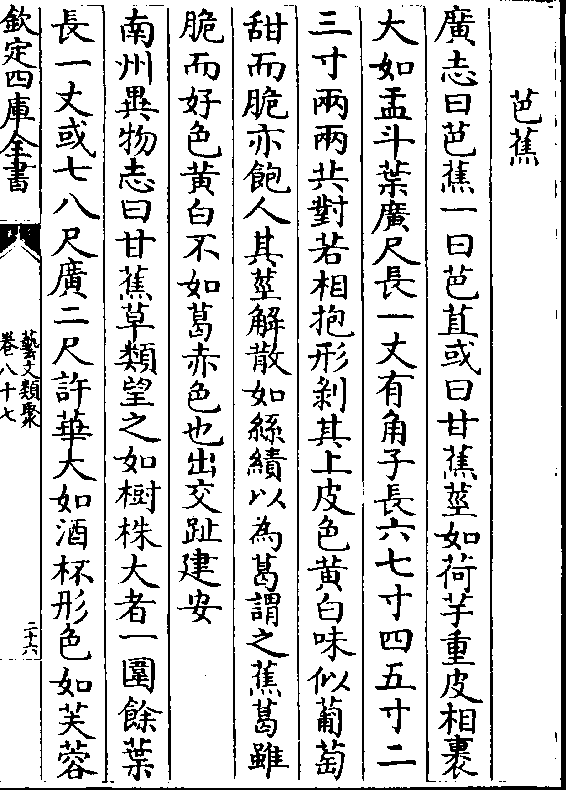 芭蕉
廣志曰芭蕉一曰芭苴或曰甘蕉莖如荷芋重皮相裹
大如盂斗葉廣尺長一丈有角子長六七寸四五寸二
三寸兩兩共對若相抱形剥其上皮色黄白味似葡萄
甜而脆亦飽人其莖解散如絲績以為葛謂之蕉葛雖
脆而好色黄白不如葛赤色也出交趾建安
南州異物志曰甘蕉草類望之如樹株大者一圍餘葉
長一丈或七八尺廣二尺許華大如酒杯形色如芙蓉
欽定四庫全書
藝文類聚
卷八十七
二十六